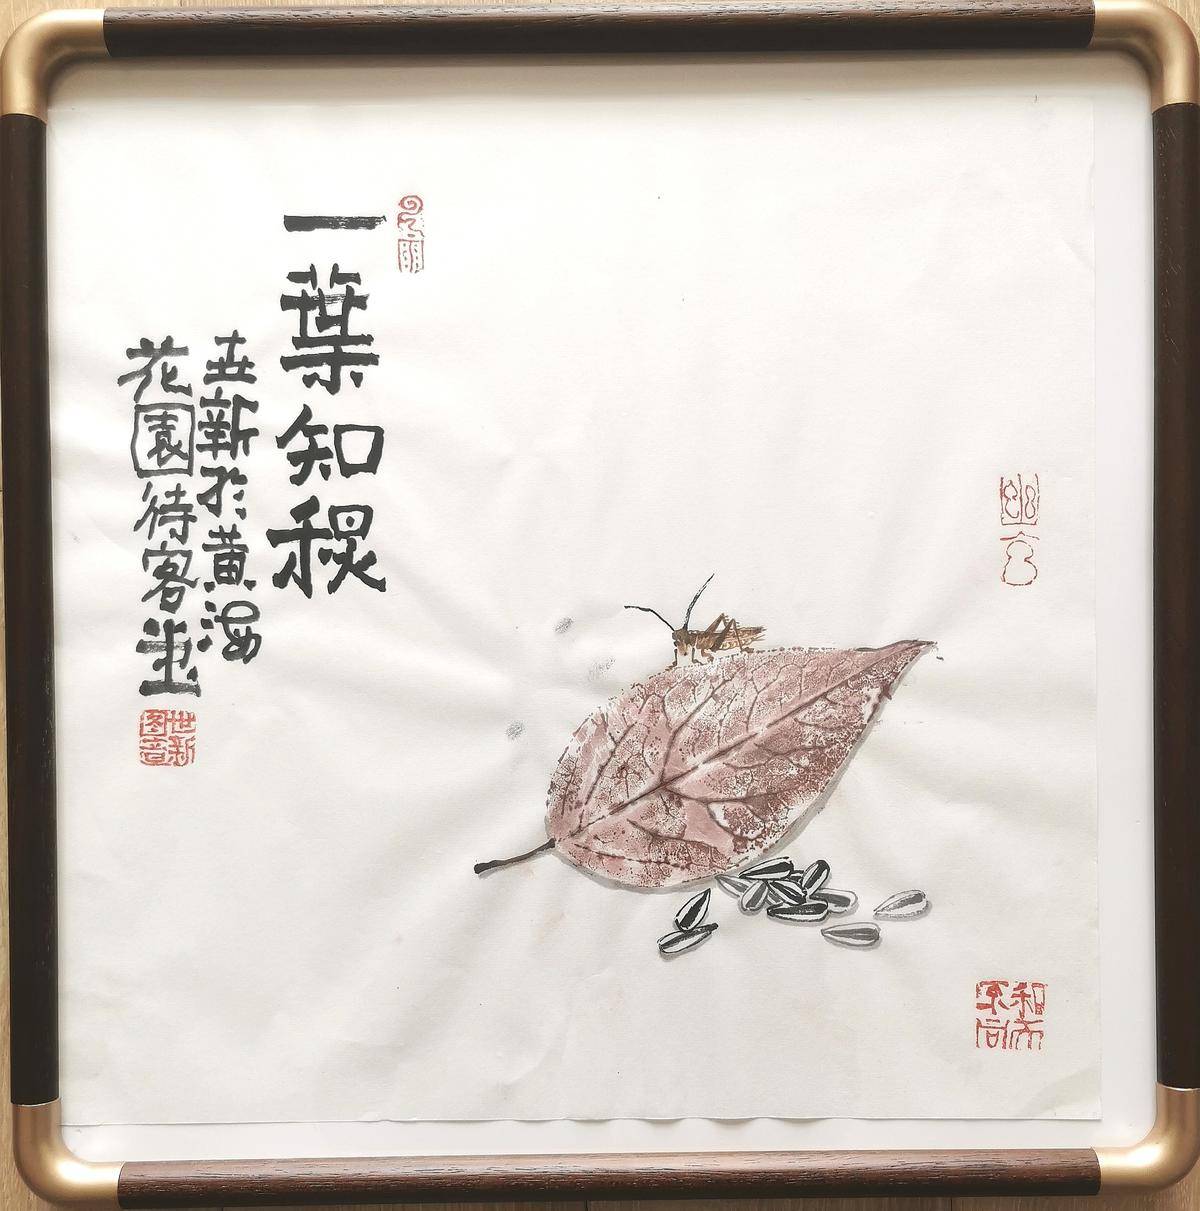 幽玄
和而不同
一葉知秋
世新於黄海
花園待客堂
世新